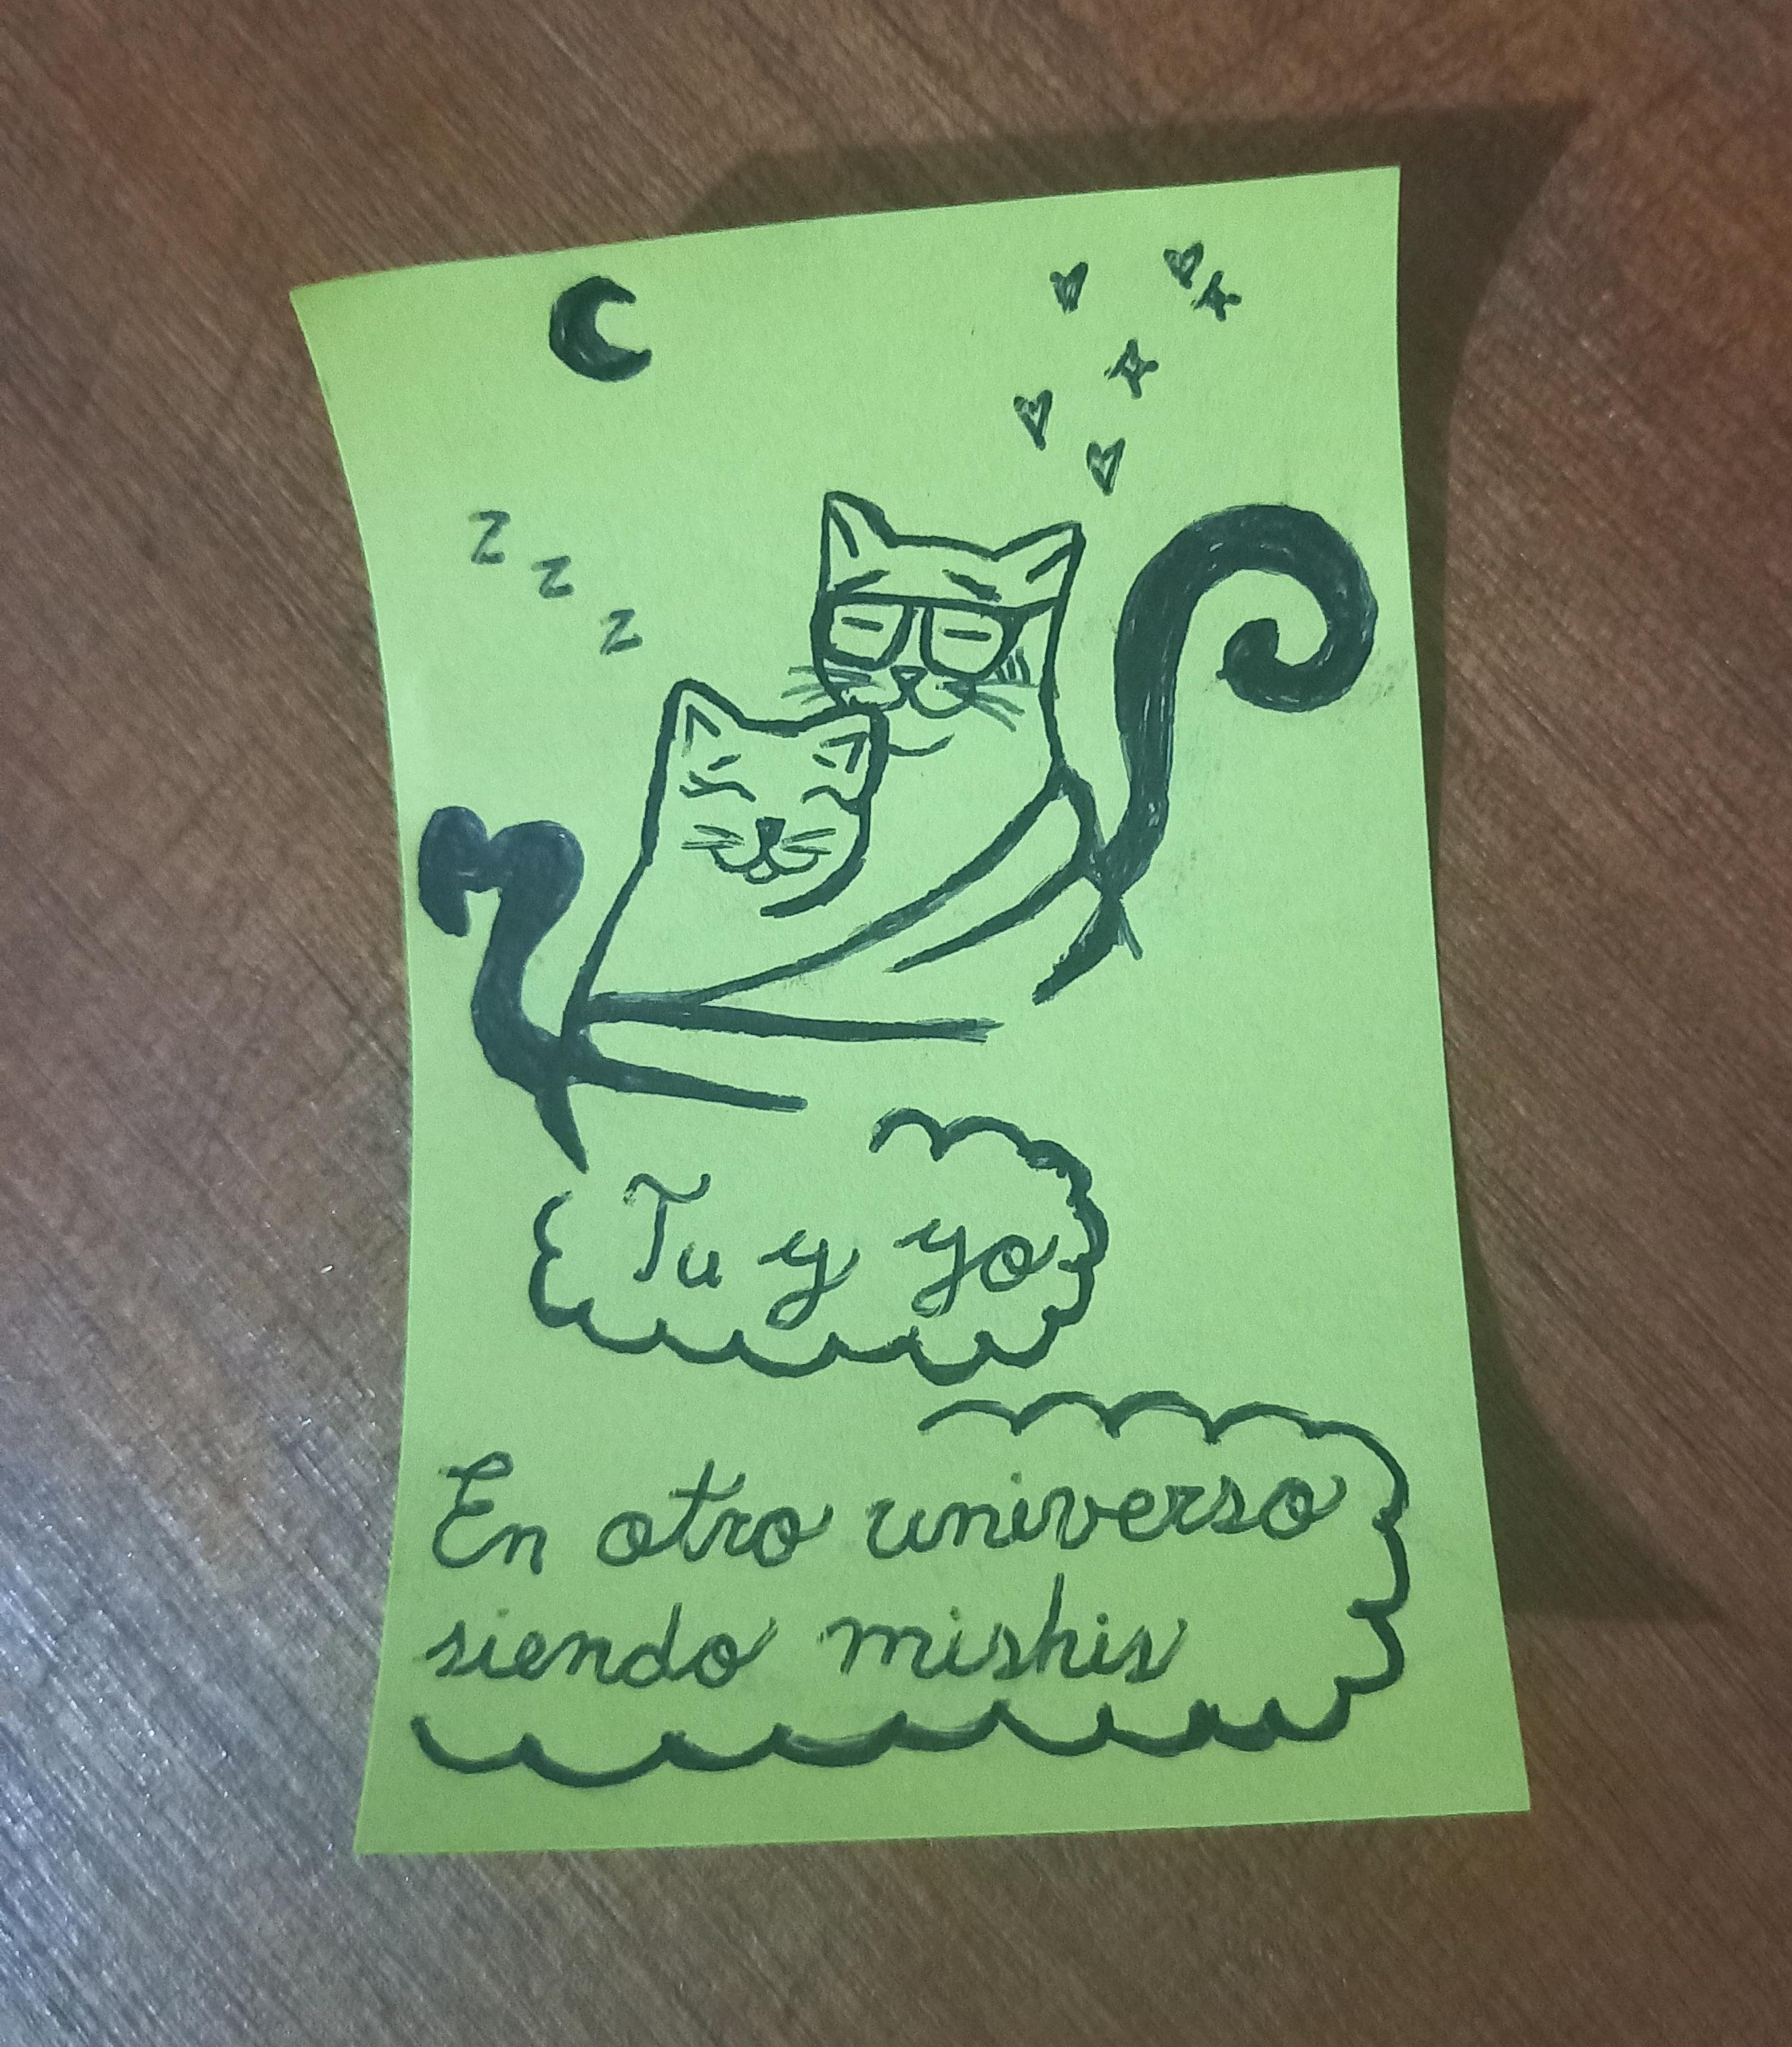 z
z
z
Tu y yo
En otro universo
siendo mishis